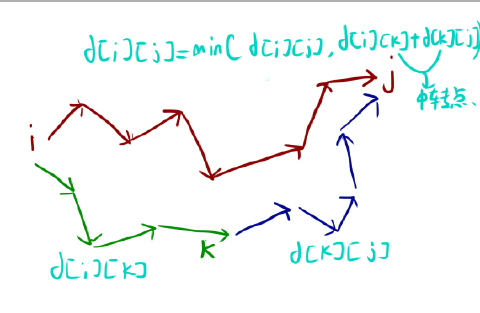 d[i][j]=min( d[i][j], d[i][k]+d[k][j])
j
中转点、
i
k
d[i][k]
d[k][j]